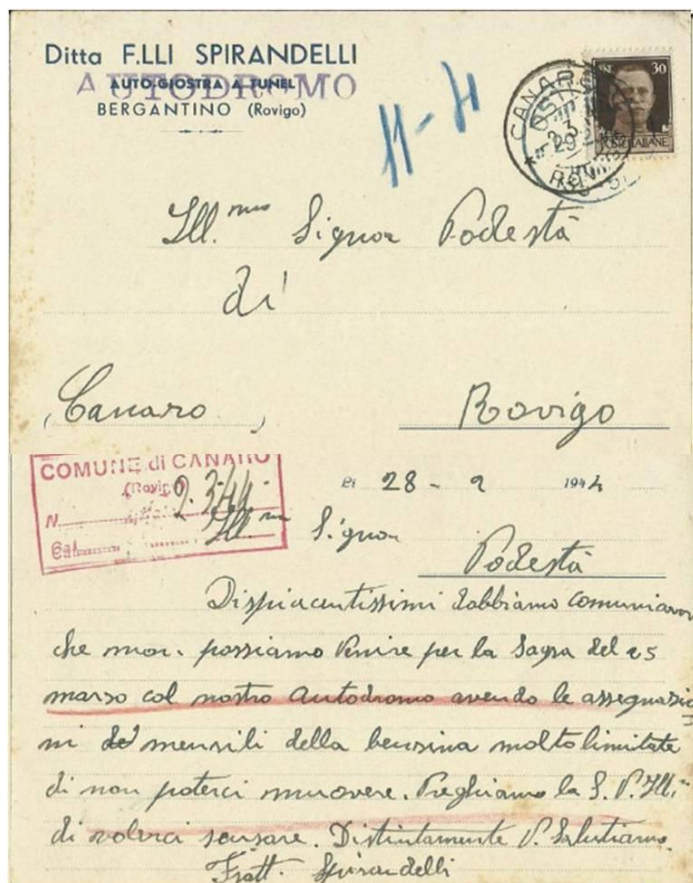 Ditta F.LLI SPIRANDELLI
AUTO-GIOSTRA A TUNEL
AUTODROMO
BERGANTINO (Rovigo)
11-71
CANARO
30
POSTE ITALIANE
Ill.mo Signor Podestà
di
Canaro
Rovigo
COMUNE di CANARO
(Rovigo)
N. 2.3/44
Cat.
28 - 2 1944
Ill.mo Signor
Podestà
Dispiacentissimi dobbiamo comunicarvi
che non possiamo venire per la Sagra del 25
marzo col nostro Autodromo avendo le assegnazio
ni mensili della benzina molto limitate
di non poterci muovere. Preghiamo la S. V. Ill.
di volerci scusare. Distintamente V. Salutiamo.
Fratt. Spirandelli